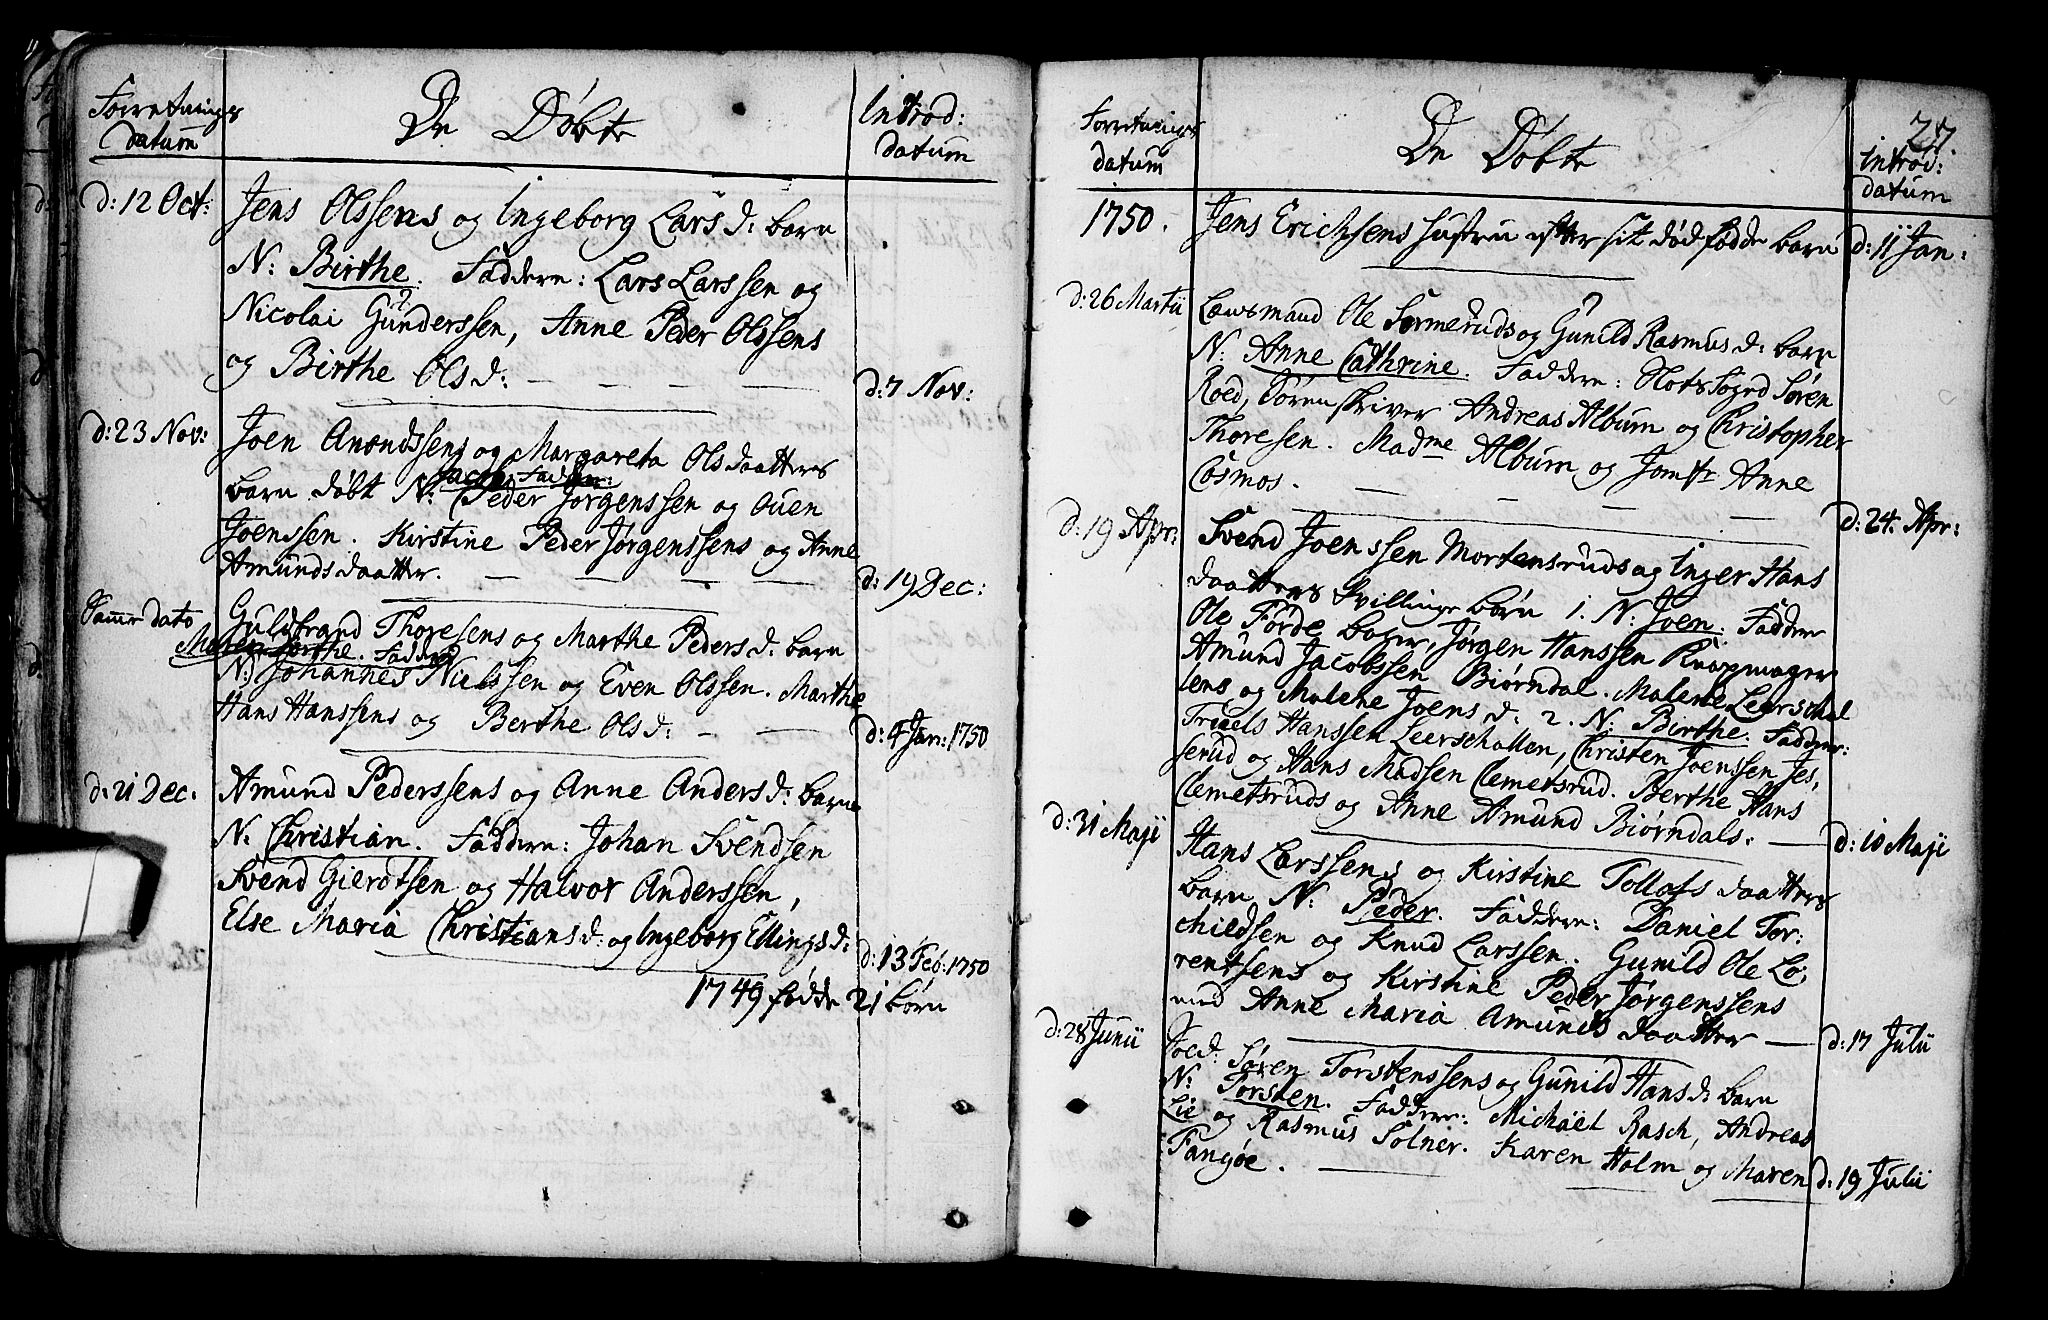 Forretnings
datum
De Døbte
Introd:
datum
d: 12 Oct:
Jens Olssens og Ingeborg Lars d: barn
N: Birthe. Faddere: Lars Larssen og
Nicolai Gunderssen, Anne Peder Olssens
og Birthe Ols d:
d: 7 Nov:
d: 23 Nov:
Joen Amondssens og Margareta Olsdaatters
barn døbt N: Jacob. Fadder:
Peder Jørgenssen og Ouen
Joenssen. Kirstine Peder Jørgenssens og Anne
Amunds daatter.
d: 19 Dec:
Samme dato
Guldbrand Thoresens og Marthe Peders d: barn
Maren Birthe. Fadder
N: Johannes Nielssen og Even Olssen. Marthe
Hans Hanssens og Berthe Ols d:
d: 4 Jan: 1750
d. 21 Dec.
Amund Pederssens og Anne Anders d: barn
N: Christian. Faddere: Johan Svendsen
Svend Gierdtsen og Halvor Anderssen,
Else Maria Christians d: og Ingeborg Ellings d:
d: 13 Feb: 1750
1749 fødde 21 børn
27.
Forretnings
datum
De Døbte
Introd:
datum
1750.
Jens Erichsens hustru efter sit død fødde barn
d: 11 Jan:
d: 26 Martii
Lensmand Ole Sørmeruds og Gunild Rasmus d: barn
N: Anne Cathrine. Faddere: Slots Fogd Søren
Roed, Sørenskriver Andreas Album og Christopher
Thoresen. Madme Album og Jomfr Anne
Cosmos.
d: 24. Apr:
d: 19 Apr:
Svend Joenssen Mortensruds og Inger Hans
daatters tvillinge børn 1. N: Joen. Fadder
Ole Førde bager, Jørgen Hanssen Knapmager
Amund Jacobssen Biørndal. Malene Leerschal
lens og Malene Joens d: 2. N: Birthe. Fadder:
Truels Hanssen Leerschallen, Christen Joenssen Jes,
serud og Hans Madsen Clemetsrud. Berthe Hans
Clemetsruds og Anne Amund Biørndals.
d: 10 Maji
d: 31 Maji
Hans Larssens og Kirstine Tollofs daatters
barn N: Peder. Faddere: Daniel Tor:
childsen og Knud Larssen. Gunild Ole Lo,
rentsens og Kirstine Peder Jørgenssens
med Anne Maria Amunds daatter
d: 17 Julii
d: 28 Junii
Soed: Søren Torstenssens og Gunild Hans d: barn
N: Torsten. Fadder: Michael Rasch, Andreas
Lie og Rasmus Solner. Karen Holm og Maren
Fangøe.
d: 19 Julii